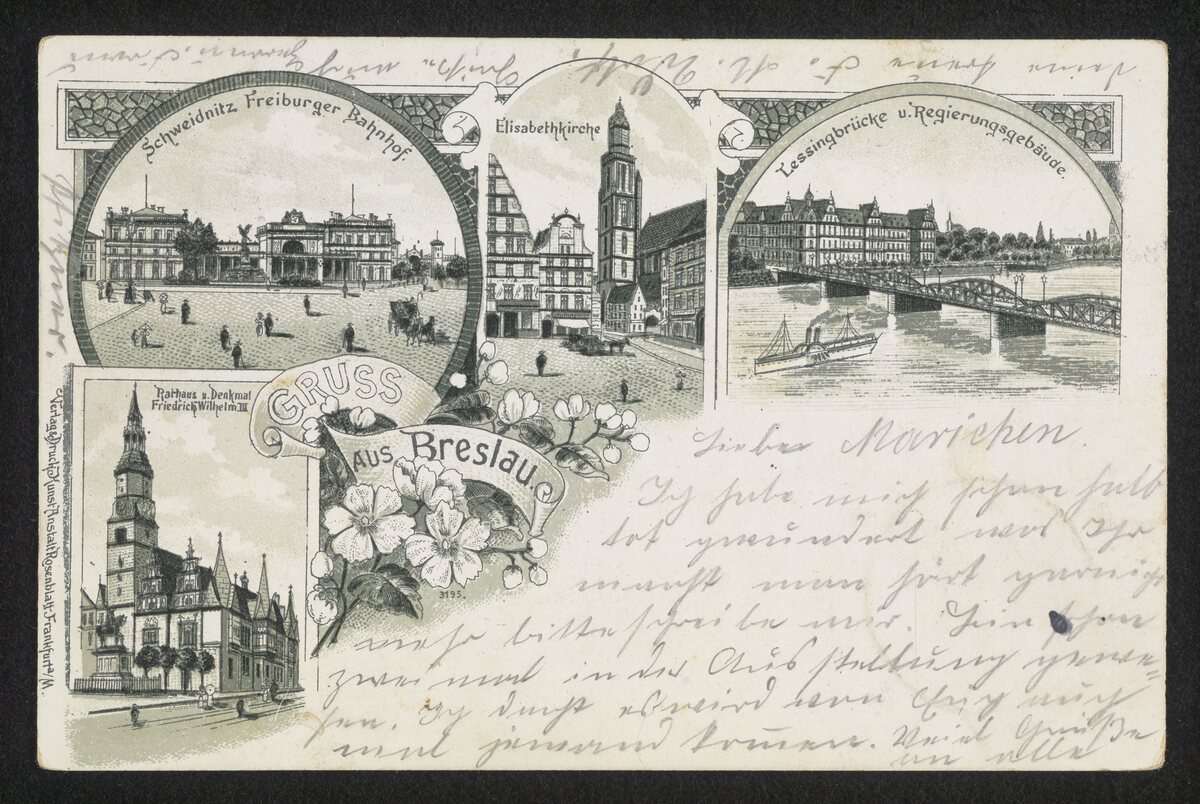 Schweidnitz Freiburger Bahnhof.
Elisabethkirche
Lessingbrücke u. Regierungsgebäude.
Rathaus u. Denkmal
Friedrich Wilhelm III
GRUSS
AUS Breslau.
3195.
Verlag u. Druck Kunst Anstalt Rosenblatt, Frankfurt a/M.
Liebes Mariechen
Ich habe mich schon halb
tot gewundert was Ihr
macht man hört garnichts
mehr bitte schreibe mir. Bin schon
zweimal in der Ausstellung gewe=
sen. Ich dacht es wird von Euch auch
mal jemand kommen. Viel Grüße
an alle
deine treue
Grüße auch